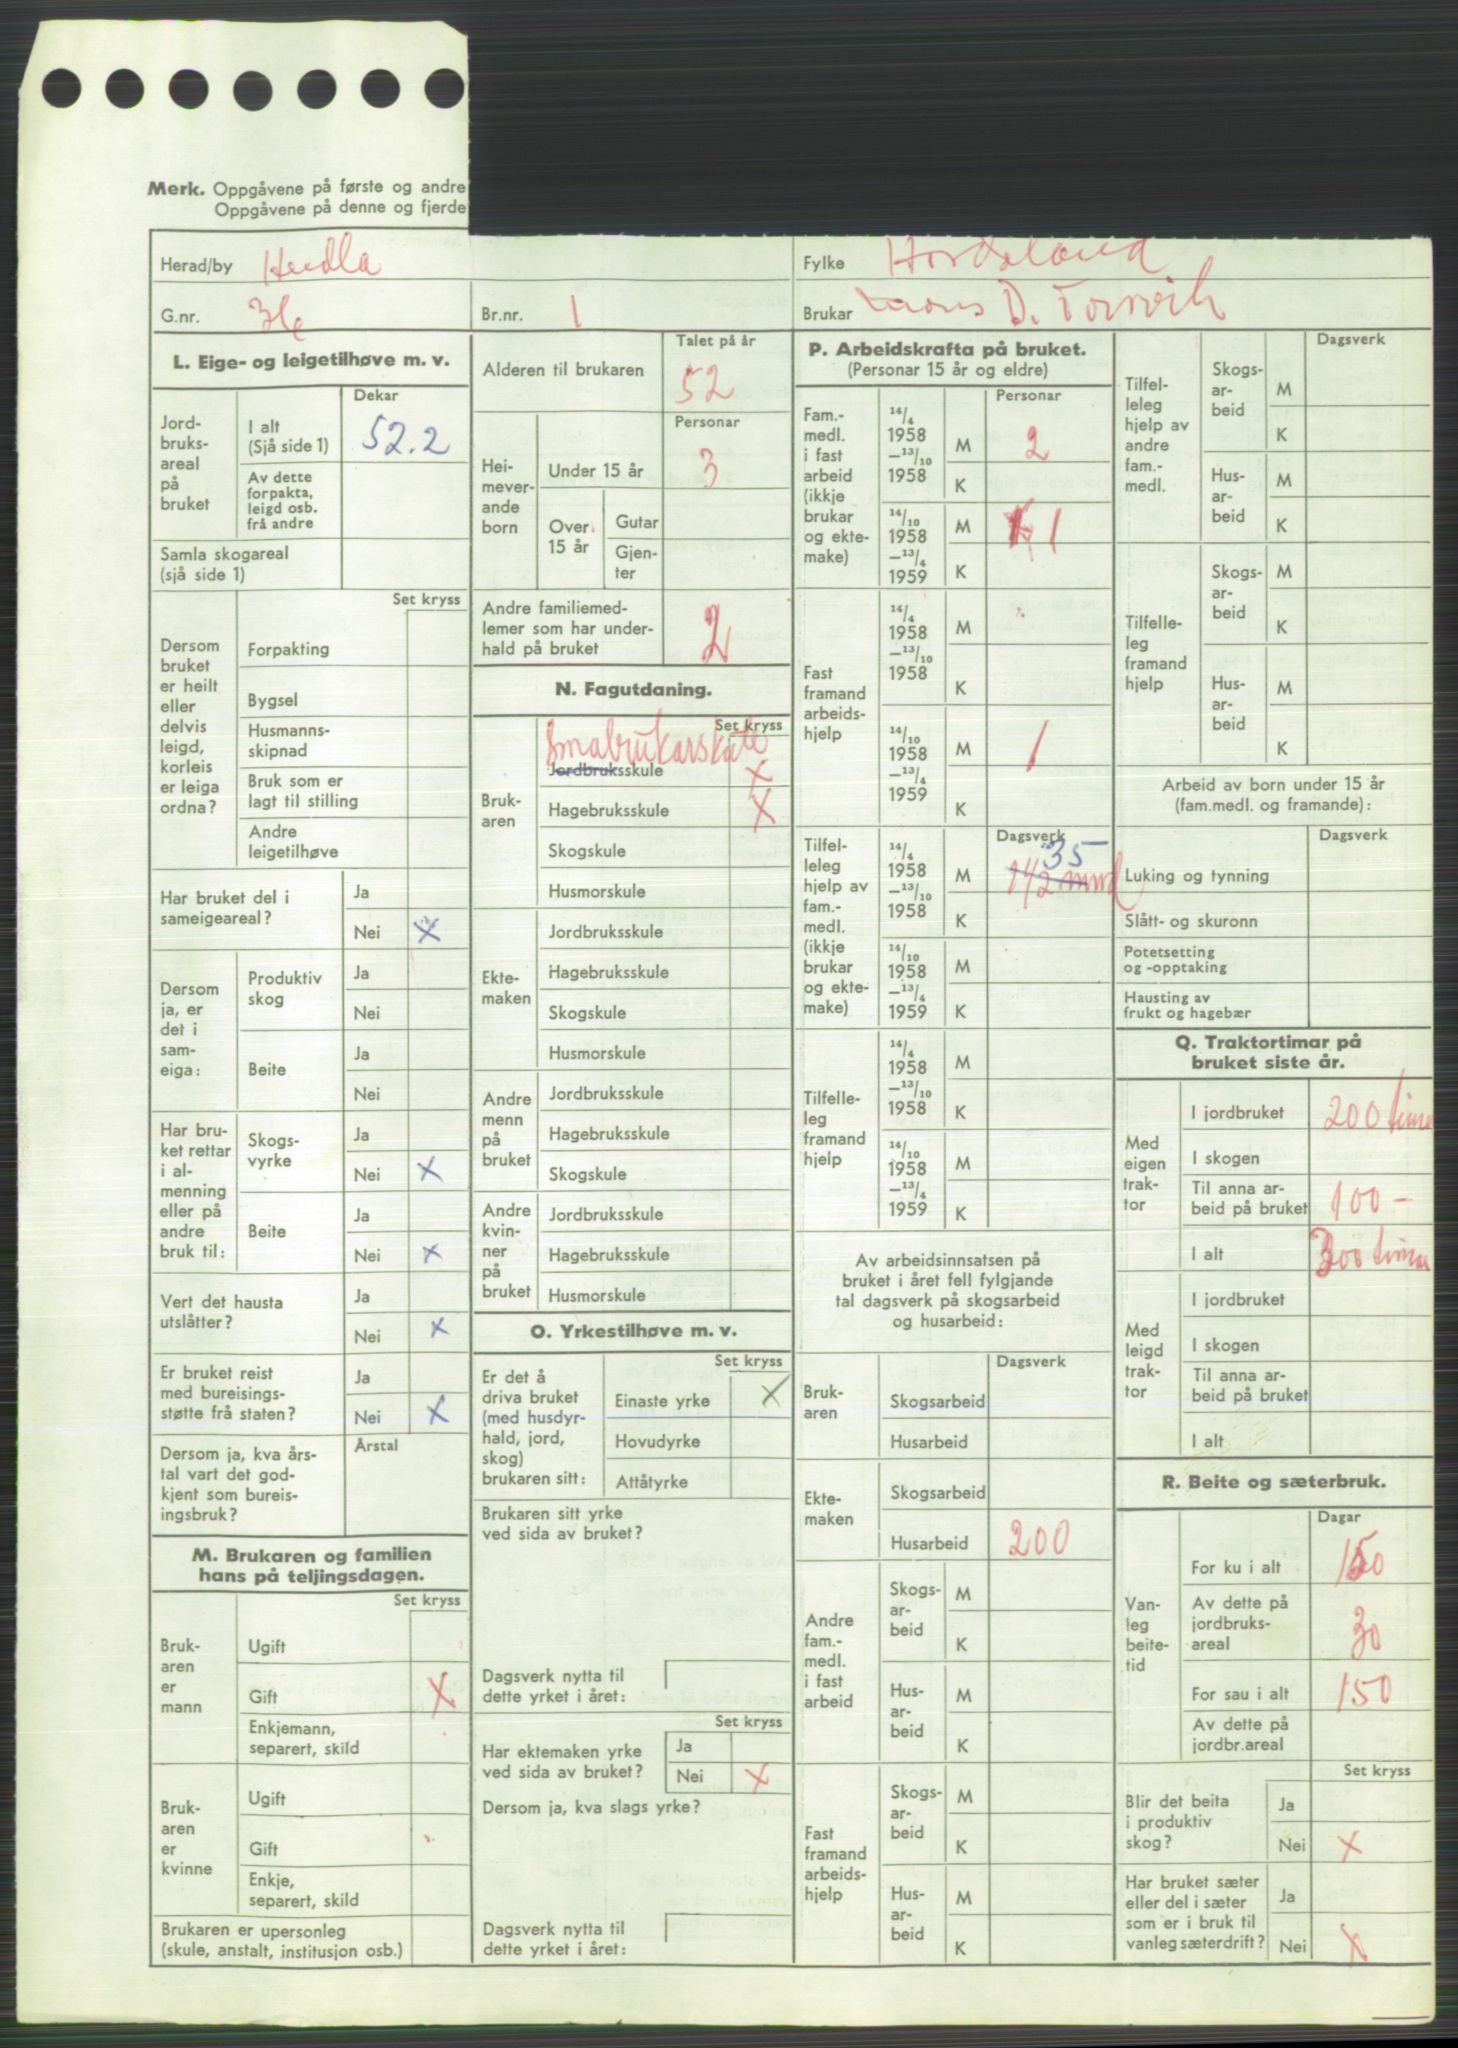 Merk. Oppgåvene på første og andre
Oppgåvene på denne og fjerde
Herad/by Herdla
Fylke Hordaland
G.nr. 36
Br.nr. 1
Brukar D. Torsvik
L. Eige- og leigetilhøve m. v.
Dekar
Jord-
bruks-
areal
på
bruket
I alt
(Sjå side 1) 52.2
Av dette
forpakta,
leigd osb.
frå andre
Samla skogareal
(sjå side 1)
Set kryss
Dersom
bruket
er heilt
eller
delvis
leigd,
korleis
er leiga
ordna?
Forpakting
Bygsel
Husmanns-
skipnad
Bruk som er
lagt til stilling
Andre
leigetilhøve
Har bruket del i
sameigeareal?
Ja
Nei X
Dersom
ja, er
det i
sam-
eiga:
Produktiv
skog
Ja
Nei
Beite
Ja
Nei
Har bru-
ket rettar
i al-
menning
eller på
andre
bruk til:
Skogs-
vyrke
Ja
Nei X
Beite
Ja
Nei X
Vert det hausta
utslåtter?
Ja
Nei X
Er bruket reist
med bureisings-
støtte frå staten?
Ja
Nei X
Dersom ja, kva års-
tal vart det god-
kjent som bureis-
ingsbruk?
Årstal
M. Brukaren og familien
hans på teljingsdagen.
Set kryss
Bruk-
aren
er
mann
Ugift
Gift X
Enkjemann,
separert, skild
Bruk-
aren
er
kvinne
Ugift
Gift
Enkje,
separert, skild
Brukaren er upersonleg
(skule, anstalt, institusjon osb.)
Talet på år
Alderen til brukaren 52
Personar
Hei-
mever-
ande
born
Under 15 år 3
Over
15 år
Gutar
Gjen-
ter
Andre familiemed-
lemer som har under-
hald på bruket 2
N. Fagutdaning.
Set kryss
Bruk-
aren
Småbrukarskule
Jordbruksskule X
Hagebruksskule X
Skogskule
Husmorskule
Ekte-
maken
Jordbruksskule
Hagebruksskule
Skogskule
Husmorskule
Andre
menn
på
bruket
Jordbruksskule
Hagebruksskule
Skogskule
Andre
kvin-
ner
på
bruket
Jordbruksskule
Hagebruksskule
Husmorskule
O. Yrkestilhøve m. v.
Set kryss
Er det å
driva bruket
(med husdyr-
hald, jord,
skog)
brukaren sitt:
Einaste yrke X
Hovudyrke
Attåtyrke
Brukaren sitt yrke
ved sida av bruket?
Dagsverk nytta til
dette yrket i året:
Set kryss
Har ektemaken yrke
ved sida av bruket?
Ja
Nei X
Dersom ja, kva slags yrke?
Dagsverk nytta til
dette yrket i året:
P. Arbeidskrafta på bruket.
(Personar 15 år og eldre)
Personar
Fam.-
medl.
i fast
arbeid
(ikkje
brukar
og ekte-
make)
14/4
1958
—13/10
1958
M 2
K
14/10
1958
—13/4
1959
M 1
K
Fast
framand
arbeids-
hjelp
14/4
1958
—13/10
1958
M
K
14/10
1958
—13/4
1959
M 1
K
Dagsverk
Tilfel-
leleg
hjelp av
fam.-
medl.
(ikkje
brukar
og ekte-
make)
14/4
1958
—13/10
1958
M 35
K
14/10
1958
—13/4
1959
M
K
Tilfelle-
leg
framand
hjelp
14/4
1958
—13/10
1958
M
K
14/10
1958
—13/4
1959
M
K
Av arbeidsinnsatsen på
bruket i året fell fylgjande
tal dagsverk på skogsarbeid
og husarbeid:
Dagsverk
Bruk-
aren
Skogsarbeid
Husarbeid
Ekte-
maken
Skogsarbeid
Husarbeid 200
Andre
fam.-
medl.
i fast
arbeid
Skogs-
ar-
beid
M
K
Hus-
ar-
beid
M
K
Fast
framand
arbeids-
hjelp
Skogs-
ar-
beid
M
K
Hus-
ar-
beid
M
K
Dagsverk
Tilfel-
leleg
hjelp av
andre
fam.-
medl.
Skogs-
ar-
beid
M
K
Hus-
ar-
beid
M
K
Tilfelle-
leg
framand
hjelp
Skogs-
ar-
beid
M
K
Hus-
ar-
beid
M
K
Arbeid av born under 15 år
(fam.medl. og framande):
Dagsverk
Luking og tynning
Slått- og skuronn
Potetsetting
og -opptaking
Hausting av
frukt og hagebær
Q. Traktortimar på
bruket siste år.
Med
eigen
trak-
tor
I jordbruket 200 time
I skogen
Til anna ar-
beid på bruket 100 –
I alt 300 timar
Med
leigd
trak-
tor
I jordbruket
I skogen
Til anna ar-
beid på bruket
I alt
R. Beite og sæterbruk.
Dagar
Van-
leg
beite-
tid
For ku i alt 150
Av dette på
jordbruks-
areal 30
For sau i alt 150
Av dette på
jordbr.areal
Set kryss
Blir det beita
i produktiv
skog?
Ja
Nei X
Har bruket sæter
eller del i sæter
som er i bruk til
vanleg sæterdrift?
Ja
Nei X